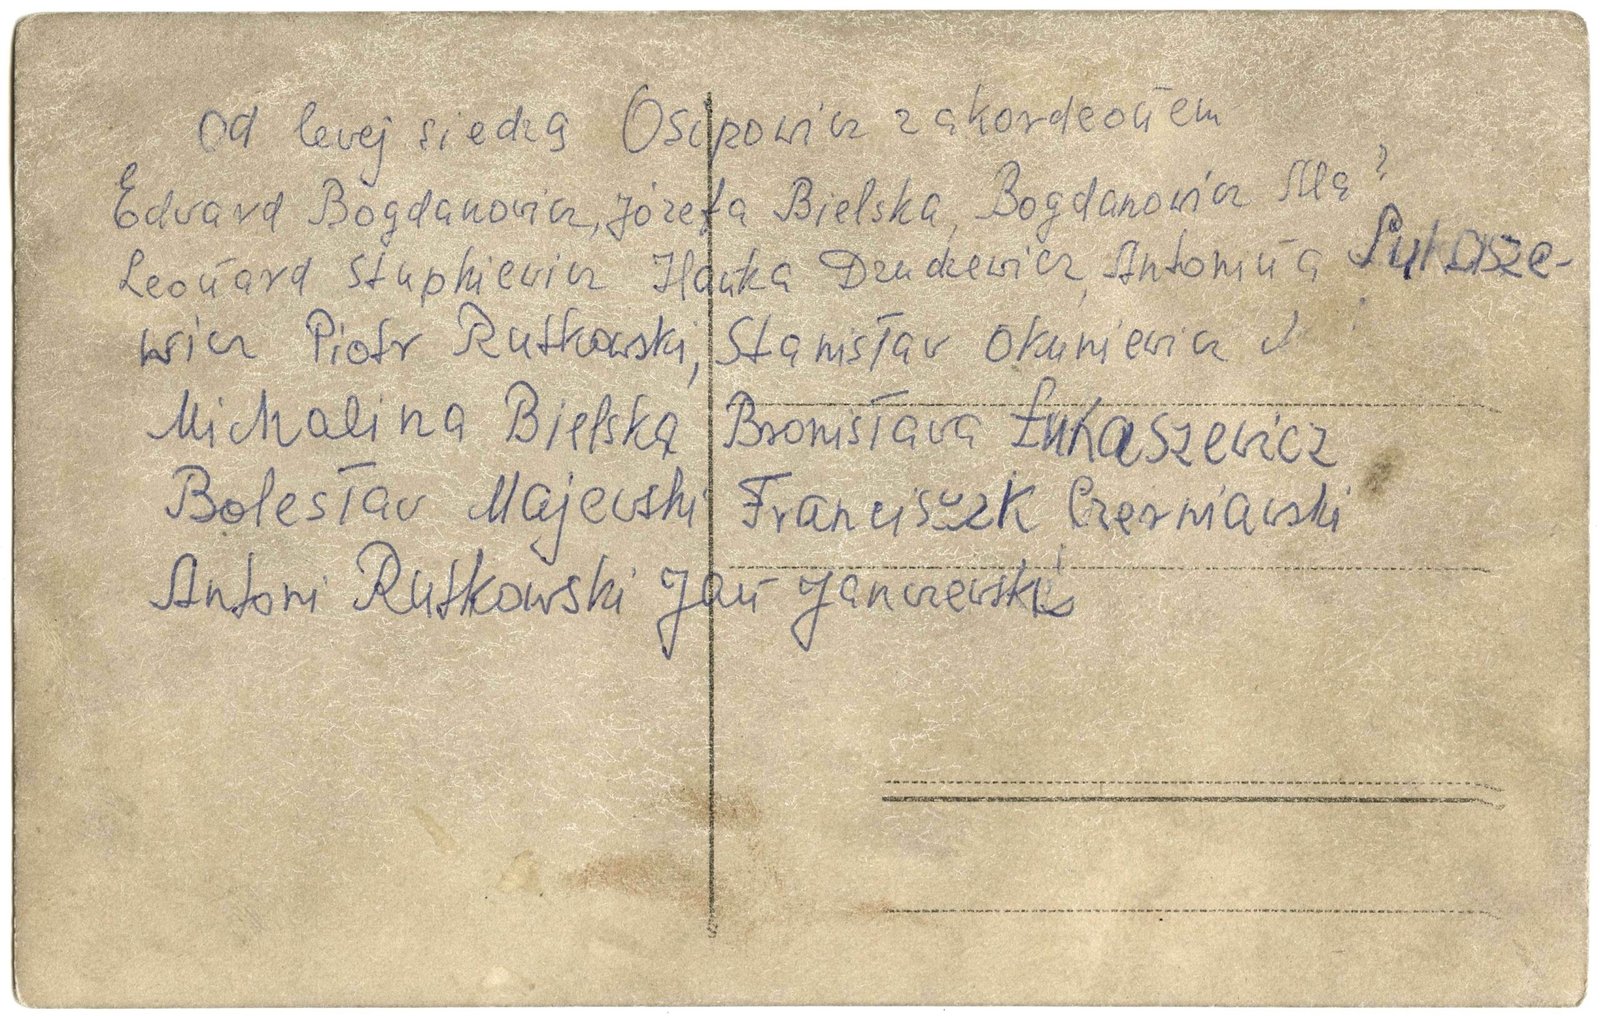 Od lewej siedzą Osipowicz z akordeonem
Edward Bogdanowicz, Józefa Bielska, Bogdanowicz ?
Leonard Stupkiewicz Hanka Druckewicz, Antonina Łukasze-
wicz Piotr Rutkowski, Stanisław Okuniewicz
Michalina Bielska Bronisława Łukaszewicz
Bolesław Majewski Franciszek Czerniawski
Antoni Rutkowski Jan Janczewski